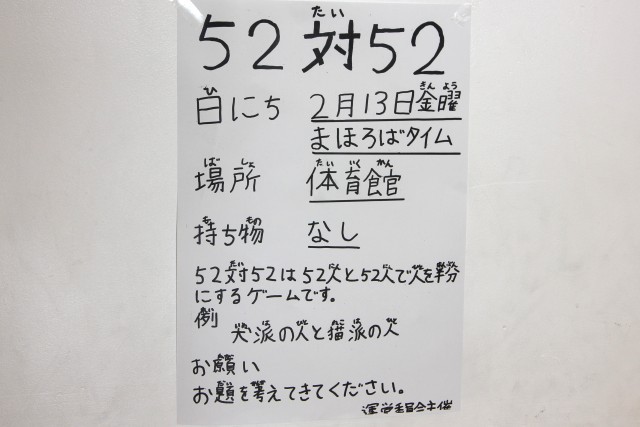 52対52
日にち 2月13日金曜
まほろばタイム
場所 体育館
持ち物 なし
52対52は52人と52人で人を半分
にするゲームです。
例
犬派の人と猫派の人
お願い
お題を考えてきてください。
運営委員会主催